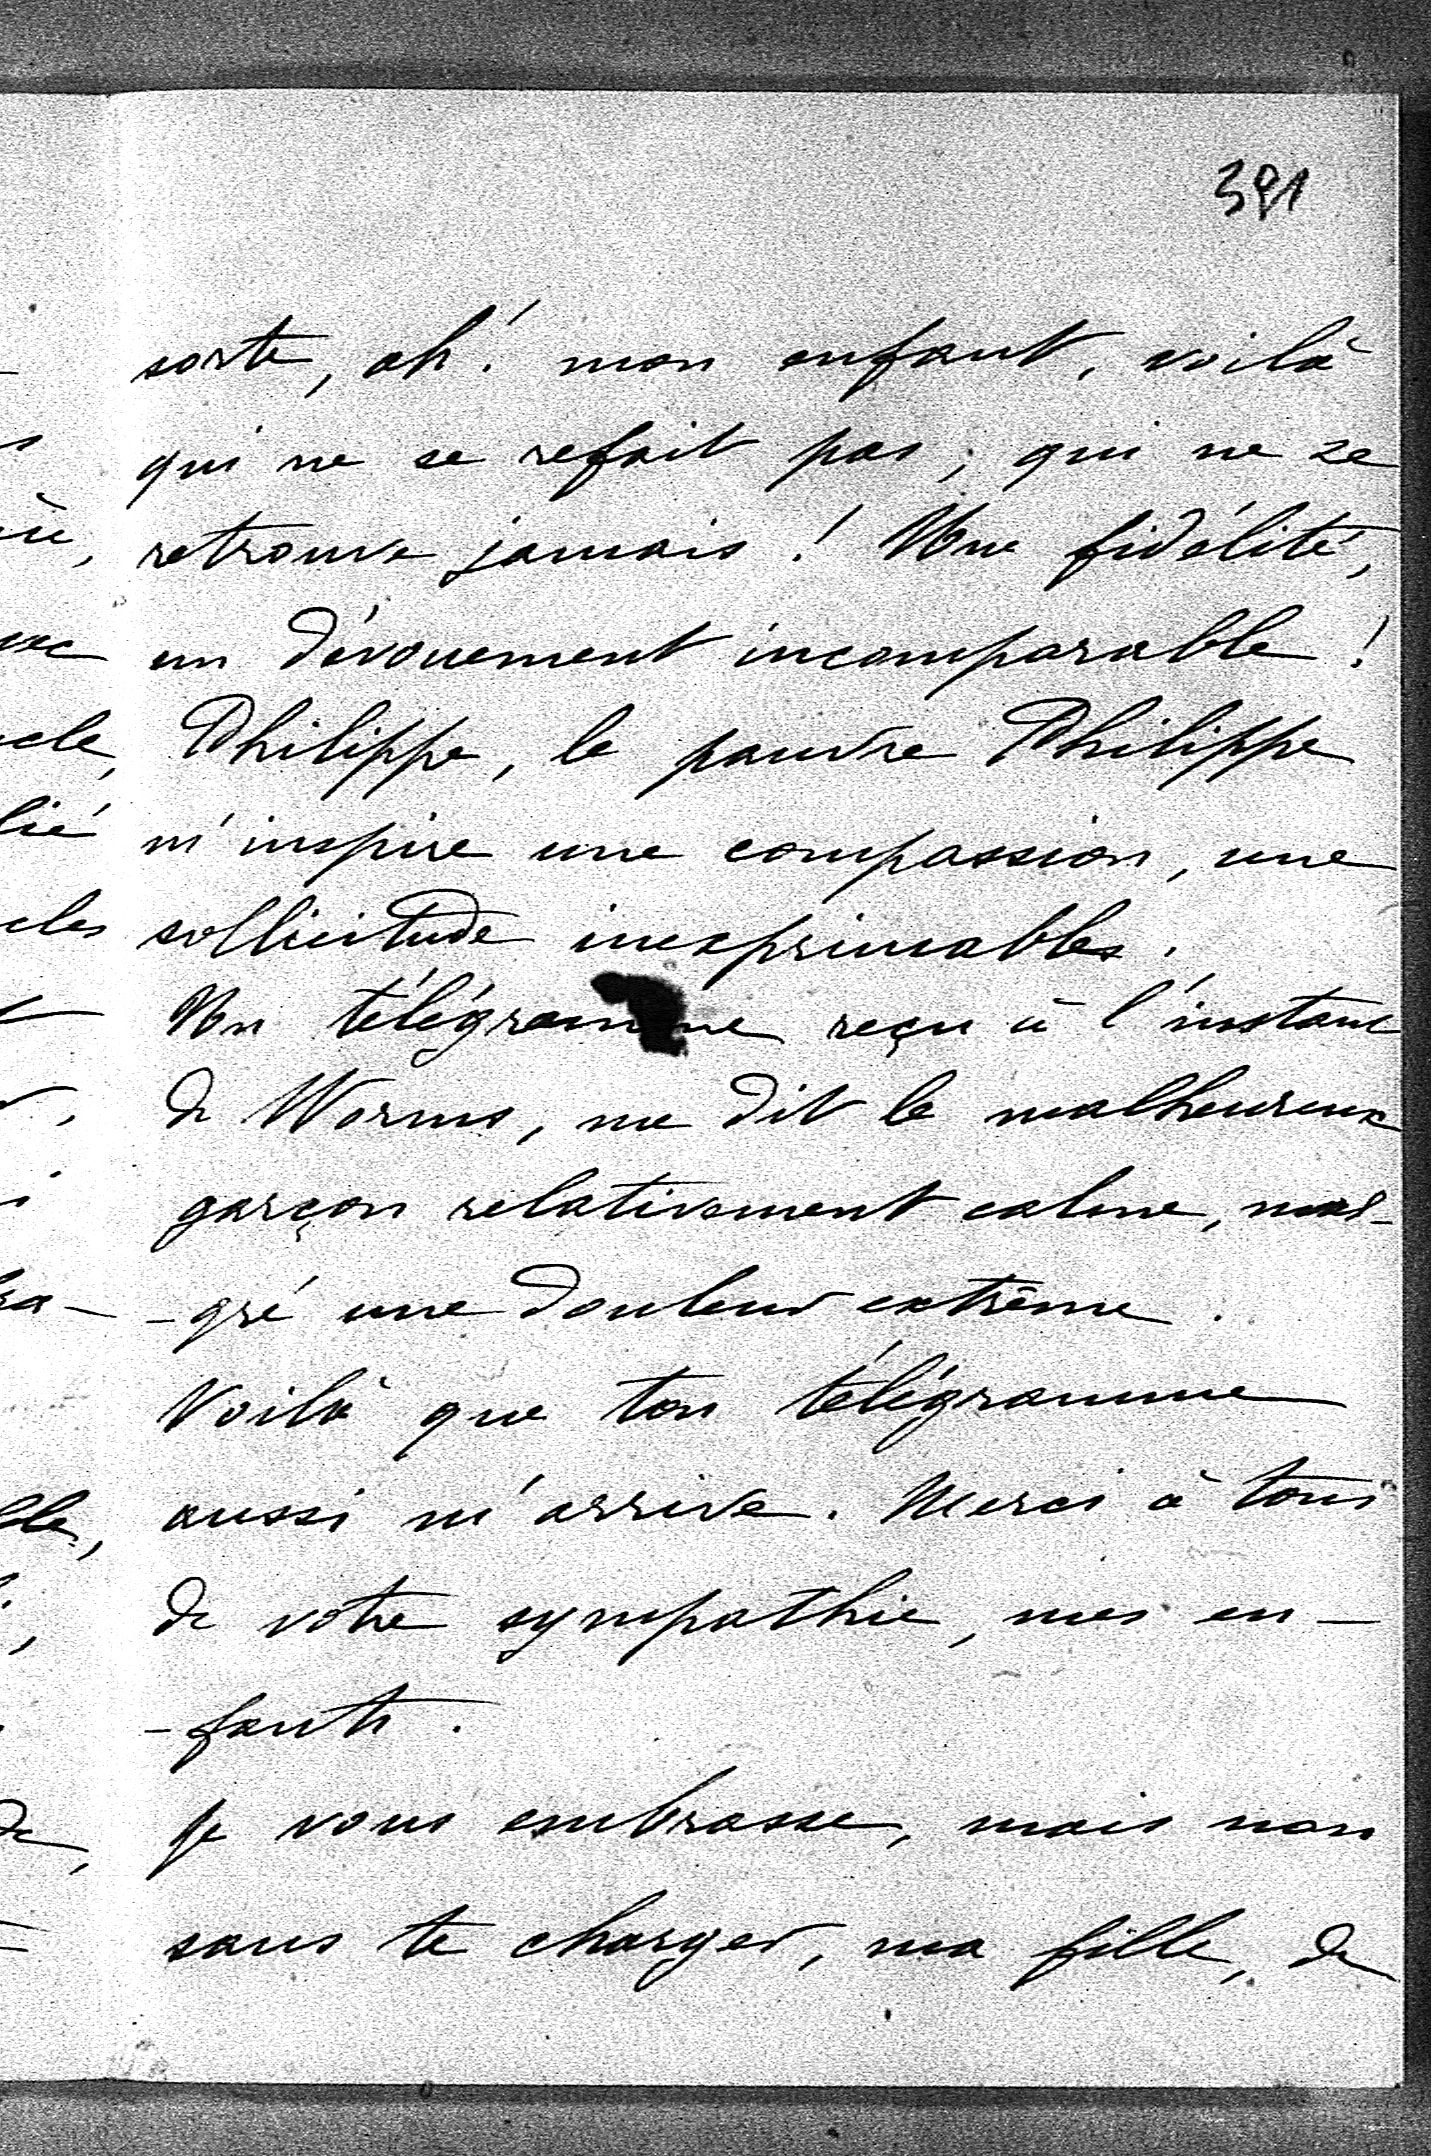 391
sorte, ah! mon enfant, voilà
qui ne se refait pas; qui ne se
retrouve jamais! Une fidélité,
un dévouement incomparable!
Philippe, le pauvre Philippe
m'inspire une compassion, une
sollicitude inexprimables.
Un télégramme reçu à l'instant
de Worms, me dit le malheureux
garçon relativement calme, mal-
-gré une douleur extrême.
Voilà que ton télégramme
aussi m'arrive. Merci à tous
de votre sympathie, mes en-
-fants.
Je vous embrasse, mais non
sans te charger, ma fille, de